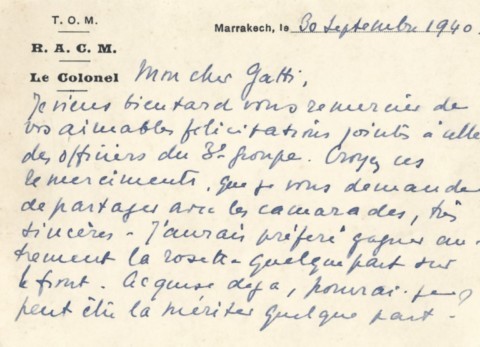 T. O. M.
R. A. C. M.
Le Colonel
Marrakech, le 30 Septembre 1940.
Mon cher Gatti,
Je viens bien tard vous remercier de
vos aimables félicitations jointes à celles
des officiers du 3e groupe. Croyez ces
remerciments, que je vous demande
de partager avec les camarades, très
sincères - J'aurais préféré gagner au-
trement la rosette quelque part sur
le front. Acquise déjà, pourrai-je
peut être la mériter quelque part -